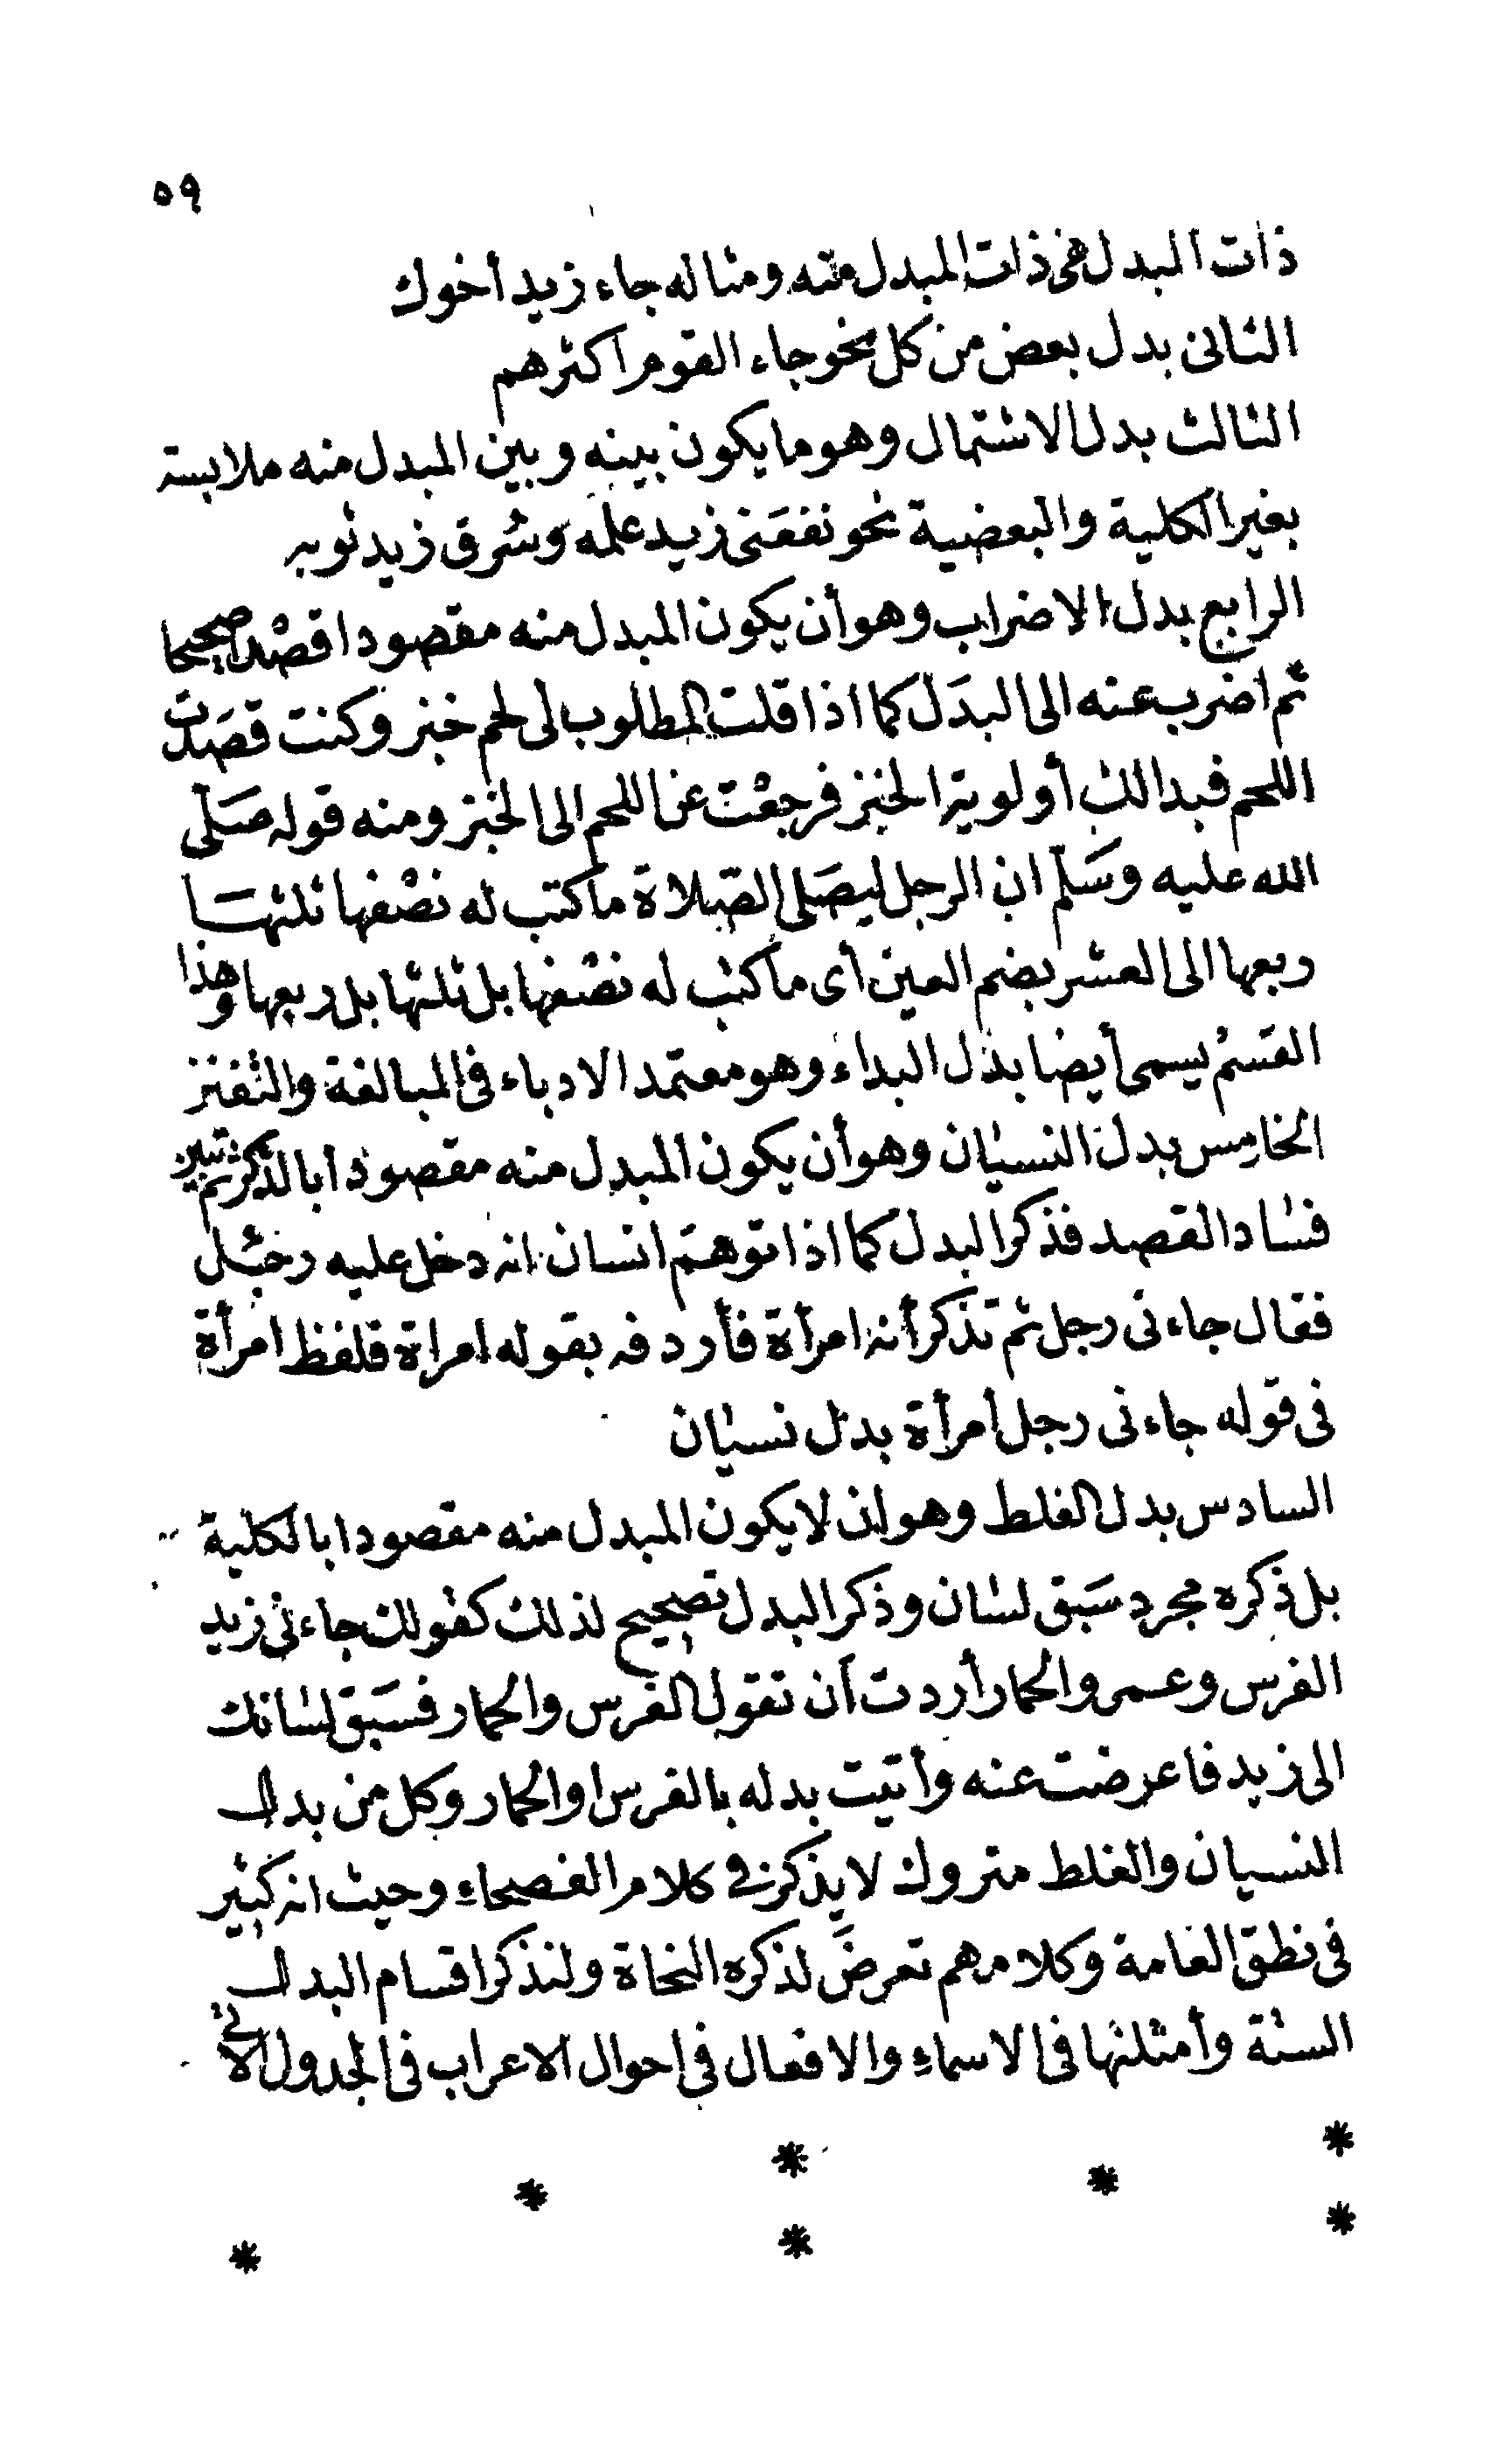 ٥٩
ذات المبدل هى ذات المبدل منه ومثاله جاء زيد أخوك
الثانى بدل بعض من كل نحو جاء القوم اكثرهم
الثالث بدل الاشتمال وهو ما يكون بينه وبين المبدل منه ملابسة
بغير الكلية والبعضية نحو نفعنى زيد علمه وسُرق زيد ثوبه
الرابع بدل الاضراب وهو أن يكون المبدل منه مقصودا قصْدا صحيحا
ثم اضرب عنه الى البدَل كما اذا قلت المطلوب لى لحم خبز وكنت قصَدت
اللحم فبدا لك أولوية الخبز فرجعْت عن اللحم الى الخبز ومنه قوله صَلّى
الله عليه وسَلّم ان الرجل ليصَلى الصّلاة ما كتب له نصْفها ثلثها
ربعها الى العشر بضم العين أى ما كتب له نصْفها بل ثلثها بل ربعها وهذا
القسمُ يسمى أيضا بدل البداء وهو معتمد الادباء فى المبالغة والتفنن
الخامس بدل النسيان وهو أن يكون المبدل منه مقصودا بالذكر ثم تبين
فساد القصد فذكر البدل كما اذا توهمَ انسان انه دخل عليه رجل
فقال جاءنى رجل ثم تذكر أنه امرأة فأردفه بقوله امراة فلفظ امرأة
فى قوله جاءنى رجل أمرأة بدل نسيان
السادس بدل الغلط وهو ان لا يكون المبدل منه مقصودا بالكلية
بل ذكره مجرد سَبق لسان وذكر البدل تصحيح لذلك كقولك جاءنى زيد
الفرس وعمرو الحمار أردت أن تقول الفرس والحمار فسَبق لسانك
الى زيد فاعرضت عنه وأتيت بدله بالفرس او الحمار وكل من بدل
النسيان والغلط متروك لا يذكر فى كلام الفصحاء وحيث انه كثير
فى نطق العامة وكلامهم تعرضَ لذكره النحاة ولنذكر اقسام البدل
الستة وأمثلتها فى الاسماء والافعال فى احوال الاعراب فى الجدول الآتى
* * * *
* * *